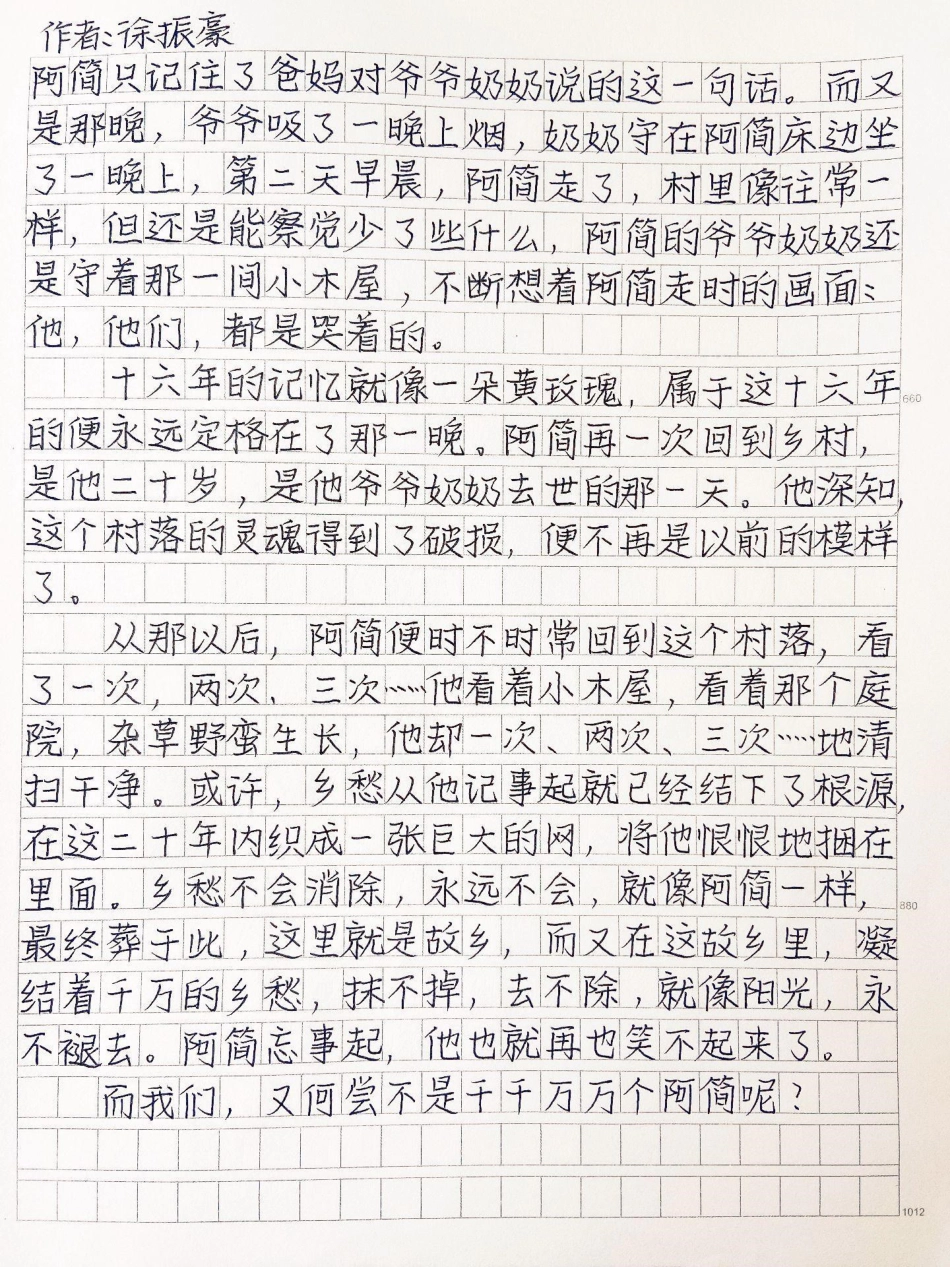 作者:徐振豪
阿简只记住了爸妈对爷爷奶奶说的这一句话。而又
是那晚，爷爷吸了一晚上烟，奶奶守在阿简床边坐
了一晚上，第二天早晨，阿简走了，村里像往常一
样，但还是能察觉少了些什么，阿简的爷爷奶奶还
是守着那一间小木屋，不断想着阿简走时的画面：
他，他们，都是哭着的。
十六年的记忆就像一朵黄玫瑰，属于这十六年
660
的便永远定格在了那一晚。阿简再一次回到乡村，
是他二十岁，是他爷爷奶奶去世的那一天。他深知，
这个村落的灵魂得到了破损，便不再是以前的模样
了。
从那以后，阿简便时不时常回到这个村落，看
了一次，两次、三次……他看着小木屋，看着那个庭
院，杂草野蛮生长，他却一次、两次、三次……地清
扫干净。或许，乡愁从他记事起就已经结下了根源，
在这二十年内织成一张巨大的网，将他恨恨地捆在
里面。乡愁不会消除，永远不会，就像阿简一样，
880
最终葬于此，这里就是故乡，而又在这故乡里，凝
结着千万的乡愁，抹不掉，去不除，就像阳光，永
不褪去。阿简忘事起，他也就再也笑不起来了。
而我们，又何尝不是千千万万个阿简呢？
1012